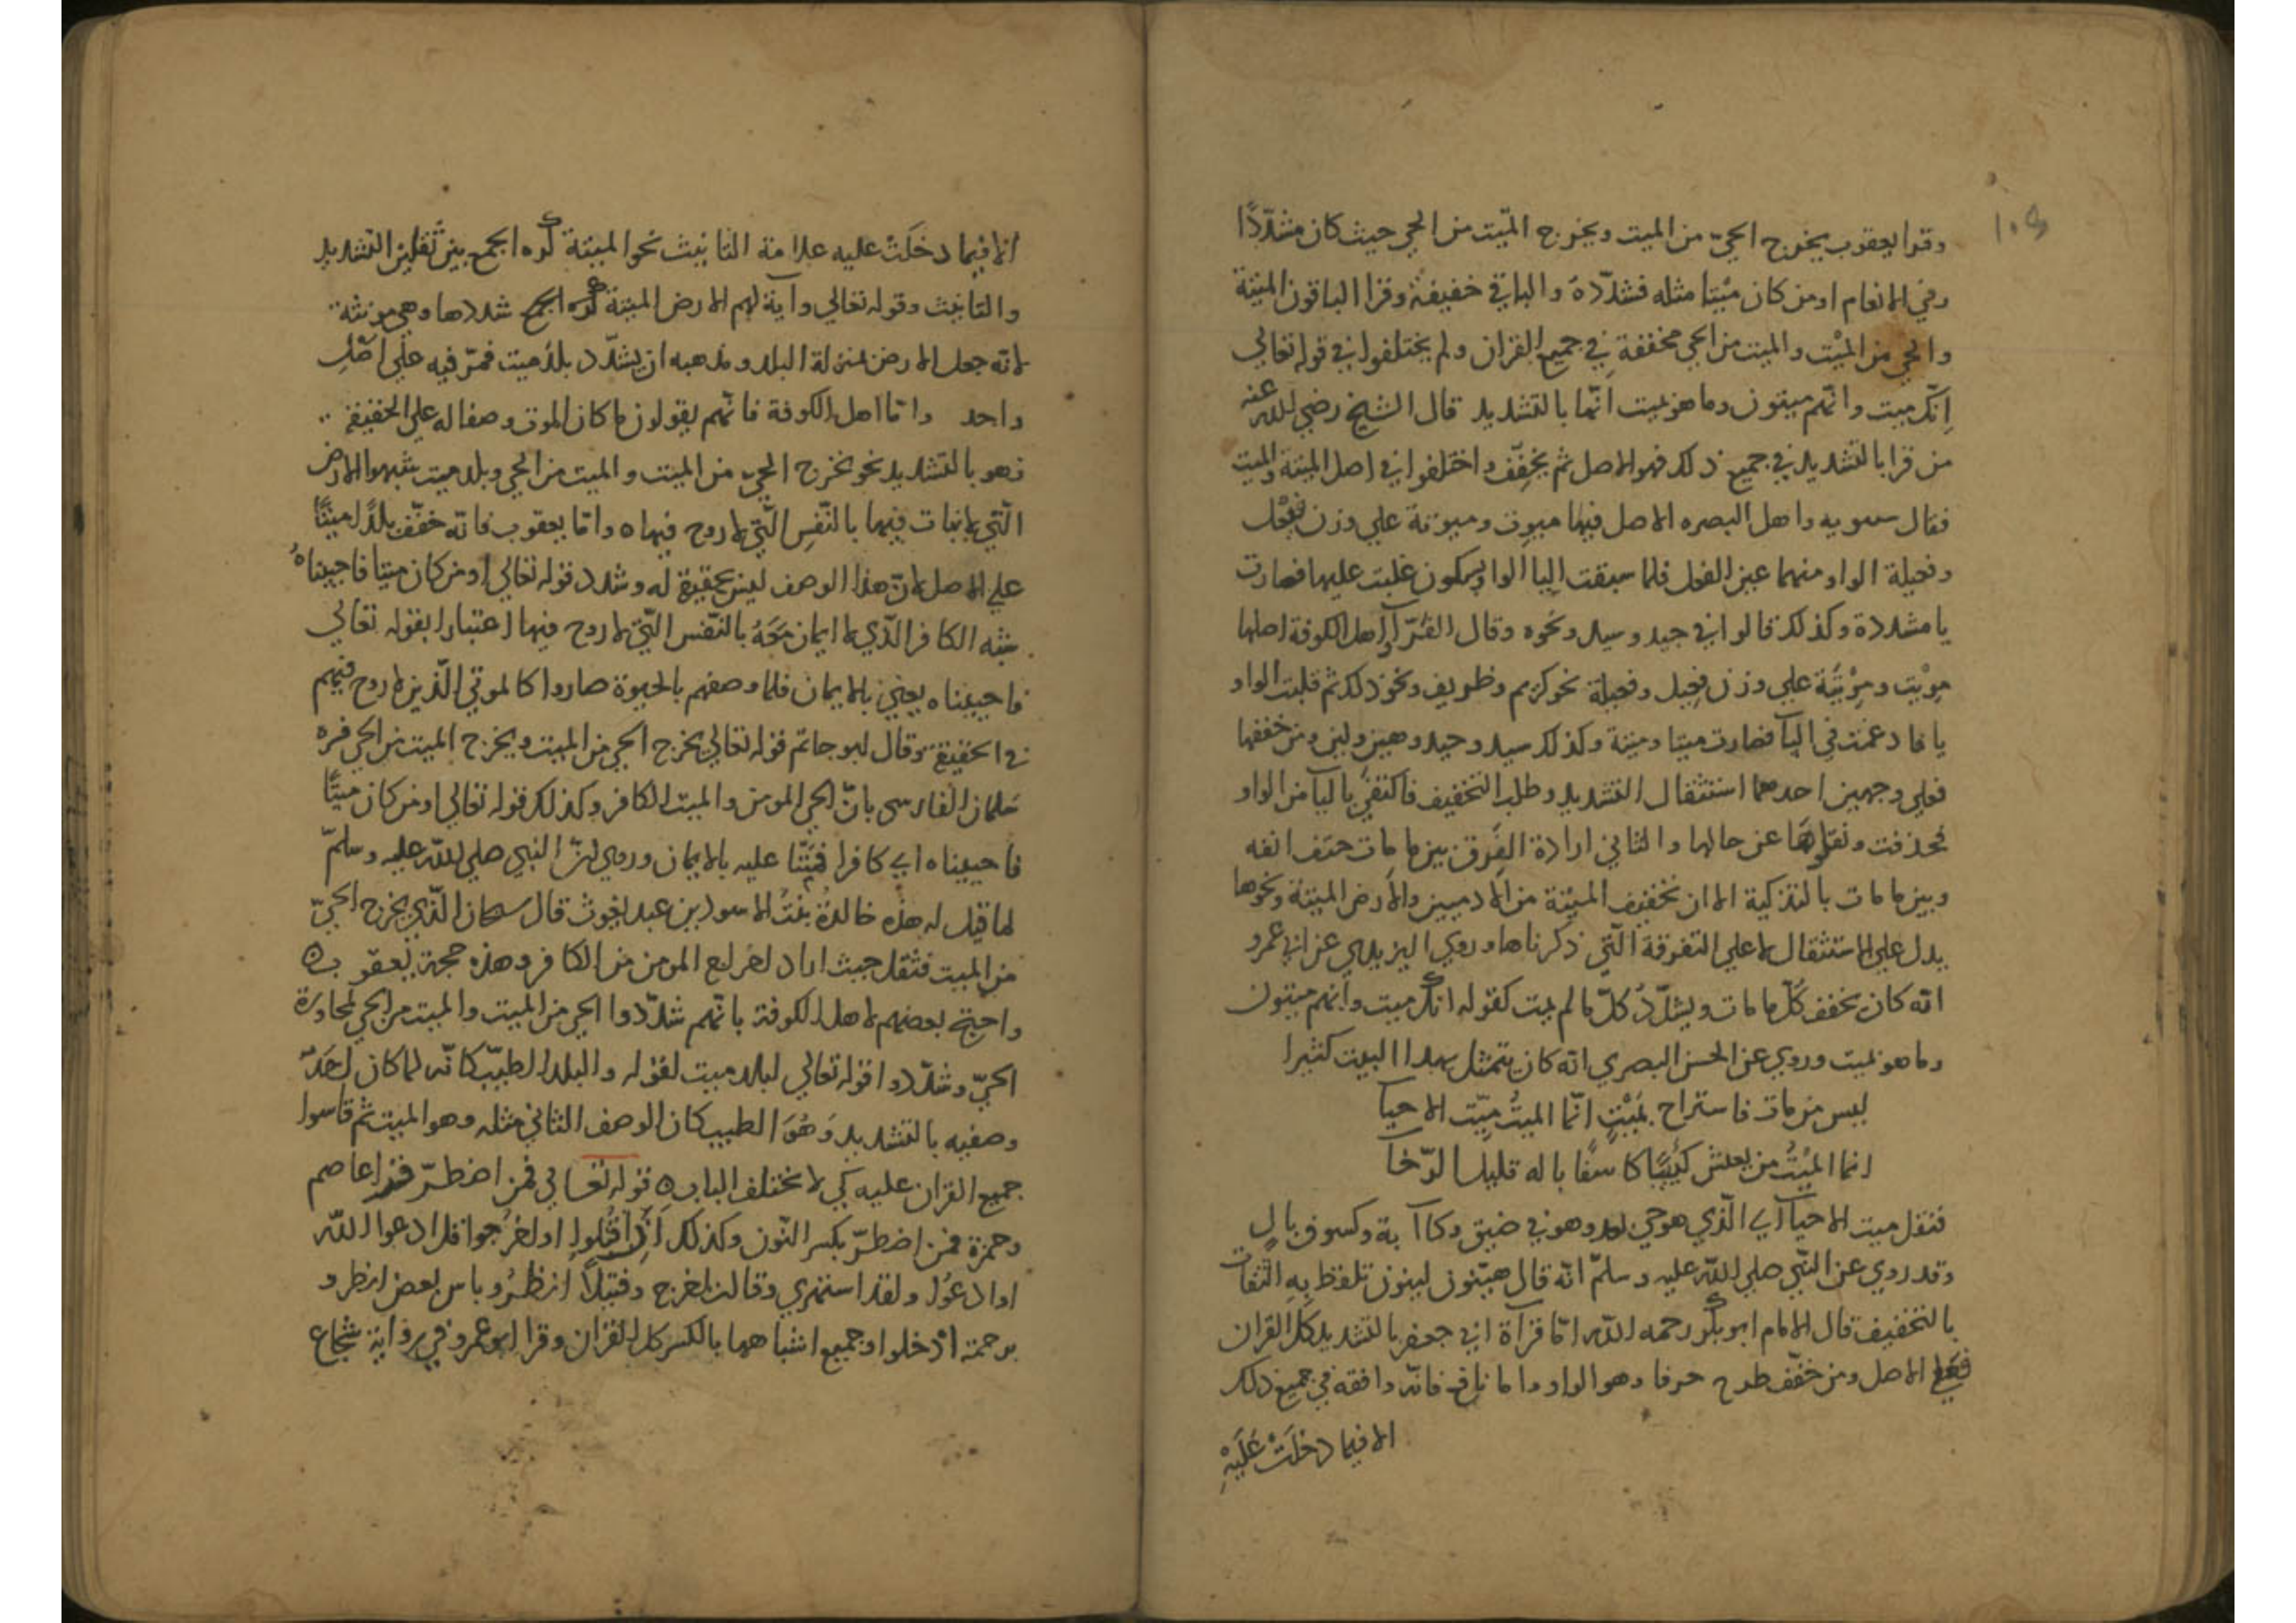 وقرا يعقوب يخرج الحيّ من الميت ويخرج الميّت من الحي حيث كان مشدّدًا
وفي الانعام اومن كان ميْتا مثله فشدّدهُ والباقي خفيفة وقرا الباقون الميتة
والحي من الميْت والميت من الحي مخففة في جميع القران ولم يختلفوا في قوله تعالي
اِنّك ميت وانّهم ميتون وما هو بميت انّها بالتشديد قال الشيخ رضي الله عنه
من قرا بالتشديد في جميع ذلك فهو الاصل ثم يخفِّف واختلفوا في اصل الميتة والميت
فقال سيبويه واهل البصره الاصل فيها ميوِت وميوتة علي وزن فيْعل
وفعيلة الواو منهما عين الفعل فلما سبقت اليا الواو بسكون غلبت عليها فصارت
يا مشددة وكذلك قالوا في جيد وسيد ونحوه وقال الفرّآ واهل الكوفة اصلها
موِيْت وموِيْتة علي وزن فعِيل وفعيلة نحو كريم وظريف ونحو ذلك ثم قلبت الواو
يا فادغمت في اليآ فصارت ميتا وميتة وكذلك سيد وجيد وهين ولين ومن خففها
فعلي وجهين احدهما استثقال التشديد وطلب التخفيف فاكتفي باليآ من الواو
فحذفت ونقلوها عن حالها والثاني ارادة الفرق بين ما مات حتف انفه
وبين ما مات بالتذكية الا ان تخفيف الميْتة من الادميين والارض الميتة ونحوها
يدل علي الاستثقال لا علي التفرقة الّتي ذكرناها وروي اليزيدي عن ابي عمرو
انّه كان يخفف كُلّ ما مات ويشدّدُ كلّ ما لم يمت كقوله انّك ميت وانهم ميتون
وما هو بميت وروي عن الحسن البصري انّه كان يتمثل بهذا البيت كثيرا
ليس من مات فاستراح بمَيْتٍ انّما الميتُ ميّت الاحيا
انما الميْتُ من يعيش كئيبًا كاسفًا باله قليل الرّخا
فثقل ميت الاحيآ اي الّذي هو حي وهو في ضيق وكاآبة وكسوف بالٍ
وقد روي عن النّبي صلي الله عليه وسلمّ انّه قال هيّنون لينون تلفظ بِهِ الثقات
بالتخفيف قال الامام ابو بكر رحمه اللّه امّا قرآة ابي جعفر بالتشديد كل القران
فعَلي الاصل ومن خفّف طرح حرفا وهو الواو واما نافع فانّه وافقه في جميع ذلك
الا فيما دخلَتْ عَلَيْهِ
الا فيما دخلَتْ عليه علامة التّانيث نحو الميتة كره الجمع بين ثقلين التشديد
والتانيث وقوله تعالي وآية لهم الارض الميتة شددها وهي مونثة
لانّه جعل الارض بمنزلة البلد ومذهبه ان يشدّد بلد ميت فمرّ فيه علي اصْلِ
واحد وامّا اهل الكوفة فانّهم يقولون ما كان الموت وصفا له علي الحقيقة
فهو بالتشديد نحو تخرج الحيّ من الميت والميت من الحي وبلد ميت شبهوا الارض
الّتي لا نبات فيها بالنّفسِ الّتي لا روح فيها ه وامّا يعقوب فانّه خفّف بلدًا ميْتًا
علي الاصل لانّ هذا الوصف ليس بحقيقة له وشدد قوله تعالي اومن كان ميتا فاحييناهُ
شبّه الكافر الّذي لا ايمان مَعَهُ بالنّفس الّتي لا روح فيها اعتبارا بقوله تعالي
فاحييناه يعني بالايمان فلما وصفهم بالحيوة صاروا كالموتي الّذين لا روح فيهم
في الحقيقة وقال ابو حاتم قوله تعالي يخرج الحي من الميت ويخرج الميت من الحي فسره
سَلمان الفارسي بانّ الحي المومن والميت الكافر وكذلك قوله تعالي اومن كان ميتًا
فاحييناه اي كافرا فمنَنّا عليه بالايمان وروي انّ النبي صلي اللّه عليه وسلمّ
لما قيل له هذه خالدةُ بنْتُ الاسود بن عبد يغوث قال سبحان الّذي يخرج الحيّ
من الميت فثقل حيث اراد اخراج المومن من الكافر وهذه حجة يعقوب ه
واحتج بعضهم لاهل الكوفة بانّهم شدّدوا الحي من الميت والميت من الحي لمجاورة
الحيّ وشدّدوا قوله تعالي لبلد ميت لقوله والبلد الطيّب كانّه لما كان احَدُ
وصفيه بالتشديد وَهُوَ الطيب كان الوصف الثاني مثله وهو الميت ثم قاسوا
جميع القران عليه كي لا يختلف الباب ه قوله تعالي فمن اضطرّ قرا عاصم
وحمزة فمن اضطرّ بكسر النّون وكذلك اَنِ اقتُلوا او اخرُجوا قل ادعوا اللّه
او ادعُوا ولقد استهزي وقالت اخرج وفتيلاً انظرُ وباس بعض انظرو
برحمة ادخلوا وجميع اشباهها بالكسر كل القران وقرا ابو عمرو في رواية شجاع